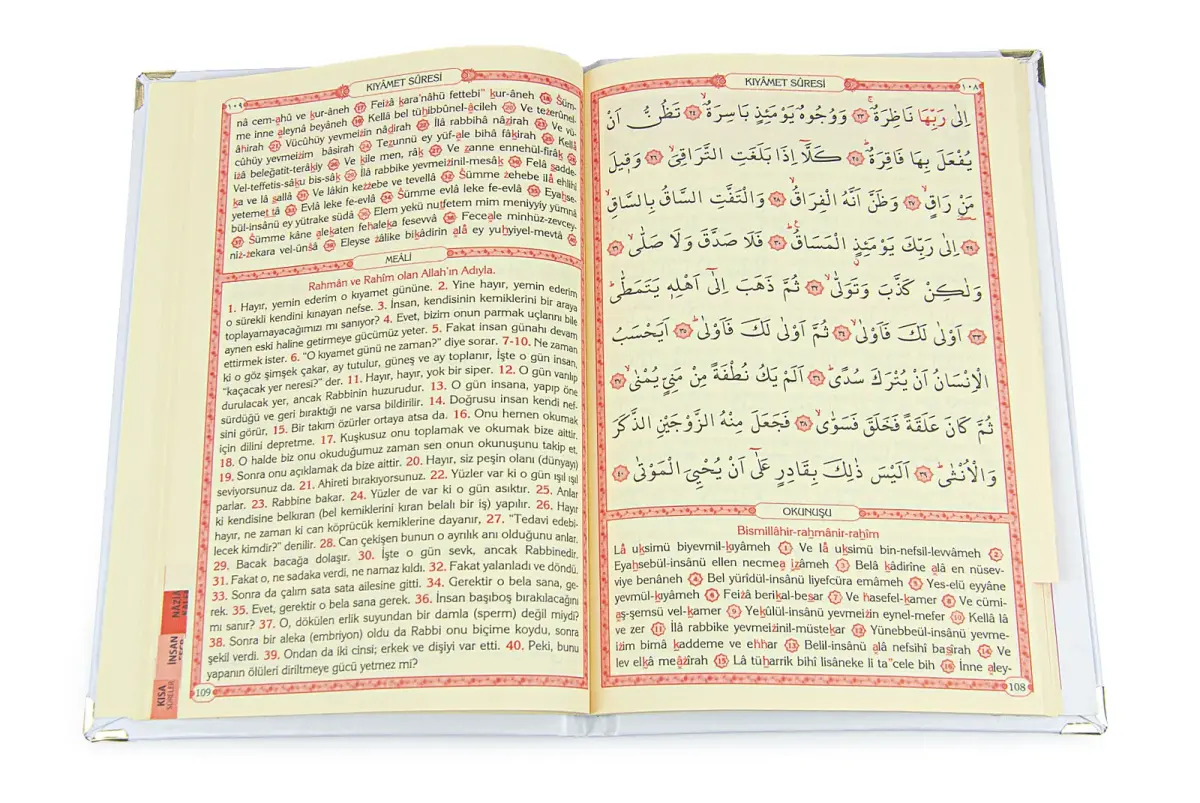 KIYÂMET SÛRESİ
١٠٨
اِلٰى رَبِّهَا نَاظِرَةٌۚ ﴿٢٣﴾ وَوُجُوهٌ يَوْمَئِذٍ بَاسِرَةٌۙ ﴿٢٤﴾ تَظُنُّ اَنْ
يُفْعَلَ بِهَا فَاقِرَةٌؕ ﴿٢٥﴾ كَلَّٓا اِذَا بَلَغَتِ التَّرَاقِيَۙ ﴿٢٦﴾ وَق۪يلَ
مَنْ رَاقٍۙ ﴿٢٧﴾ وَظَنَّ اَنَّهُ الْفِرَاقُۙ ﴿٢٨﴾ وَالْتَفَّتِ السَّاقُ بِالسَّاقِۙ
﴿٢٩﴾ اِلٰى رَبِّكَ يَوْمَئِذٍ الْمَسَاقُؕ ﴿٣٠﴾ فَلَا صَدَّقَ وَلَا صَلّٰىۙ ﴿٣١﴾
وَلٰكِنْ كَذَّبَ وَتَوَلّٰىۙ ﴿٣٢﴾ ثُمَّ ذَهَبَ اِلٰٓى اَهْلِه۪ يَتَمَطّٰىؕ
﴿٣٣﴾ اَوْلٰى لَكَ فَاَوْلٰىۙ ﴿٣٤﴾ ثُمَّ اَوْلٰى لَكَ فَاَوْلٰىؕ ﴿٣٥﴾ اَيَحْسَبُ
الْاِنْسَانُ اَنْ يُتْرَكَ سُدًىؕ ﴿٣٦﴾ اَلَمْ يَكُ نُطْفَةً مِنْ مَنِيٍّ يُمْنٰىۙ ﴿٣٧﴾
ثُمَّ كَانَ عَلَقَةً فَخَلَقَ فَسَوّٰىۙ ﴿٣٨﴾ فَجَعَلَ مِنْهُ الزَّوْجَيْنِ الذَّكَرَ
وَالْاُنْثٰىؕ ﴿٣٩﴾ اَلَيْسَ ذٰلِكَ بِقَادِرٍ عَلٰٓى اَنْ يُحْيِيَ الْمَوْتٰى ﴿٤٠﴾
OKUNUŞU
Bismillâhir-rahmânir-rahîm
Lâ uksimü biyevmil-kıyâmeh 1 Ve lâ uksimü bin-nefsil-levvâmeh 2
Eyahsebül-insânü ellen necmea ızâmeh 3 Belâ kâdirîne alâ en nüsev-
viye benâneh 4 Bel yürîdül-insânü liyefcüra emâmeh 5 Yes-elü eyyâne
yevmül-kıyâmeh 6 Feizâ berikal-besar 7 Ve hasefel-kamer 8 Ve cümi-
aş-şemsü vel-kamer 9 Yekûlül-insânü yevmeizin eynel-mefer 10 Kellâ lâ
ve zer 11 İlâ rabbike yevmeizinil-müstekar 12 Yünebbeül-insânü yevme-
izim bimâ kaddeme ve ehhar 13 Belil-insânü alâ nefsihî basîrah 14 Ve
lev elkâ meâzîrah 15 Lâ tüharrik bihî lisâneke li ta"cele bih 16 İnne aley-
108
١٠٩
KIYÂMET SÛRESİ
nâ cem-ahû ve kur-âneh 17 Feizâ kara'nâhü fettebi" kur-âneh 18 Süm-
me inne aleynâ beyâneh 19 Kellâ bel tühibbûnel-âcileh 20 Ve tezerûnel-
âhirah 21 Vücûhüy yevmeizin nâdirah 22 İlâ rabbihâ nâzirah 23 Ve vü-
cûhüy yevmeizim bâsirah 24 Tezunnü ey yüf-ale bihâ fâkirah 25 Kellâ
izâ beleğatit-terâkiy 26 Ve kîle men, râk 27 Ve zanne ennehül-firâk 28
Vel-teffetis-sâku bis-sâk 29 İlâ rabbike yevmeizinil-mesâk 30 Felâ sadde-
ka ve lâ sallâ 31 Ve lâkin kezzebe ve tevellâ 32 Sümme zehebe ilâ ehlihî
yetemettâ 33 Evlâ leke fe-evlâ 34 Sümme evlâ leke fe-evlâ 35 Eyahse-
bül-insânü ey yütrake südâ 36 Elem yekü nutfetem mim meniyyiy yümnâ
37 Sümme kâne alekaten fehaleka fesevvâ 38 Feceale minhüz-zevcey-
niz-zekara vel-ünsâ 39 Eleyse zâlike bikâdirin alâ ey yuhyiyel-mevtâ 40
MEALİ
Rahmân ve Rahîm olan Allah'ın Adıyla.
1. Hayır, yemin ederim o kıyamet gününe. 2. Yine hayır, yemin ederim
o sürekli kendini kınayan nefse. 3. İnsan, kendisinin kemiklerini bir araya
toplayamayacağımızı mı sanıyor? 4. Evet, bizim onun parmak uçlarını bile
aynen eski haline getirmeye gücümüz yeter. 5. Fakat insan günahı devam
ettirmek ister. 6. "O kıyamet günü ne zaman?" diye sorar. 7-10. Ne zaman
ki o göz şimşek çakar, ay tutulur, güneş ve ay toplanır, İşte o gün insan,
"kaçacak yer neresi?" der. 11. Hayır, hayır, yok bir siper. 12. O gün varılıp
durulacak yer, ancak Rabbinin huzurudur. 13. O gün insana, yapıp öne
sürdüğü ve geri bıraktığı ne varsa bildirilir. 14. Doğrusu insan kendi nef-
sini görür, 15. Bir takım özürler ortaya atsa da. 16. Onu hemen okumak
için dilini depretme. 17. Kuşkusuz onu toplamak ve okumak bize aittir.
18. O halde biz onu okuduğumuz zaman sen onun okunuşunu takip et,
19. Sonra onu açıklamak da bize aittir. 20. Hayır, siz peşin olanı (dünyayı)
seviyorsunuz da. 21. Ahireti bırakıyorsunuz. 22. Yüzler var ki o gün ışıl ışıl
parlar. 23. Rabbine bakar. 24. Yüzler de var ki o gün asıktır. 25. Anlar
ki kendisine belkıran (bel kemiklerini kıran belalı bir iş) yapılır. 26. Hayır
hayır, ne zaman ki can köprücük kemiklerine dayanır, 27. "Tedavi edebi-
lecek kimdir?" denilir. 28. Can çekişen bunun o ayrılık anı olduğunu anlar.
29. Bacak bacağa dolaşır. 30. İşte o gün sevk, ancak Rabbinedir.
31. Fakat o, ne sadaka verdi, ne namaz kıldı. 32. Fakat yalanladı ve döndü.
33. Sonra da çalım sata sata ailesine gitti. 34. Gerektir o bela sana, ge-
rek. 35. Evet, gerektir o bela sana gerek. 36. İnsan başıboş bırakılacağını
mı sanır? 37. O, dökülen erlik suyundan bir damla (sperm) değil miydi?
38. Sonra bir aleka (embriyon) oldu da Rabbi onu biçime koydu, sonra
şekil verdi. 39. Ondan da iki cinsi; erkek ve dişiyi var etti. 40. Peki, bunu
yapanın ölüleri diriltmeye gücü yetmez mi?
109
İNSAN
KISA
SÛRELER